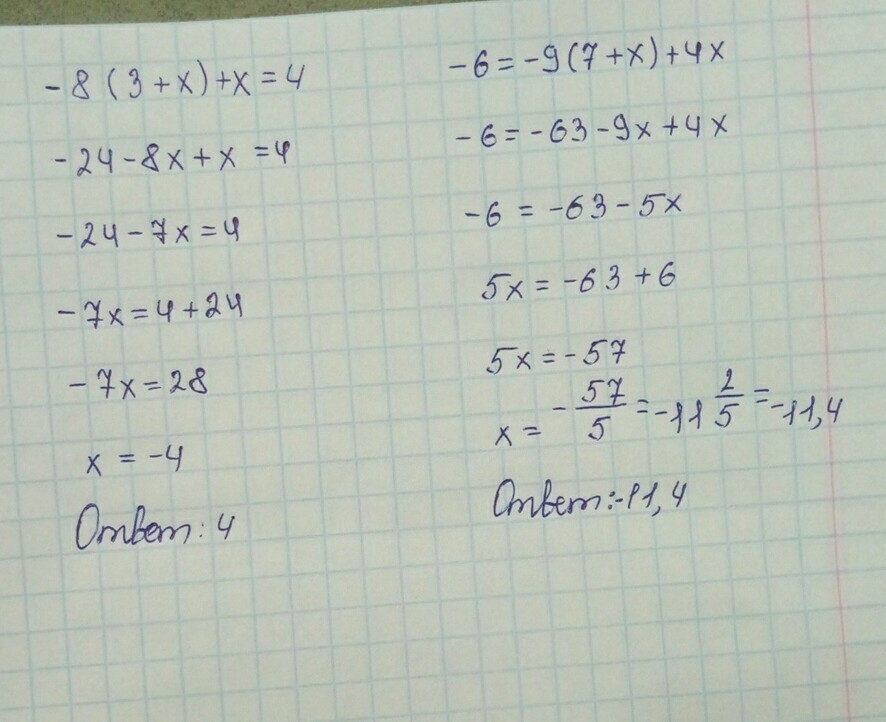 -8(3+x)+x=4
-24-8x+x=4
-24-7x=4
-7x=4+24
-7x=28
x=-4
Ответ: 4
-6=-9(7+x)+4x
-6=-63-9x+4x
-6=-63-5x
5x=-63+6
5x=-57
x=-57/5=-11 2/5=-11,4
Ответ:-11,4